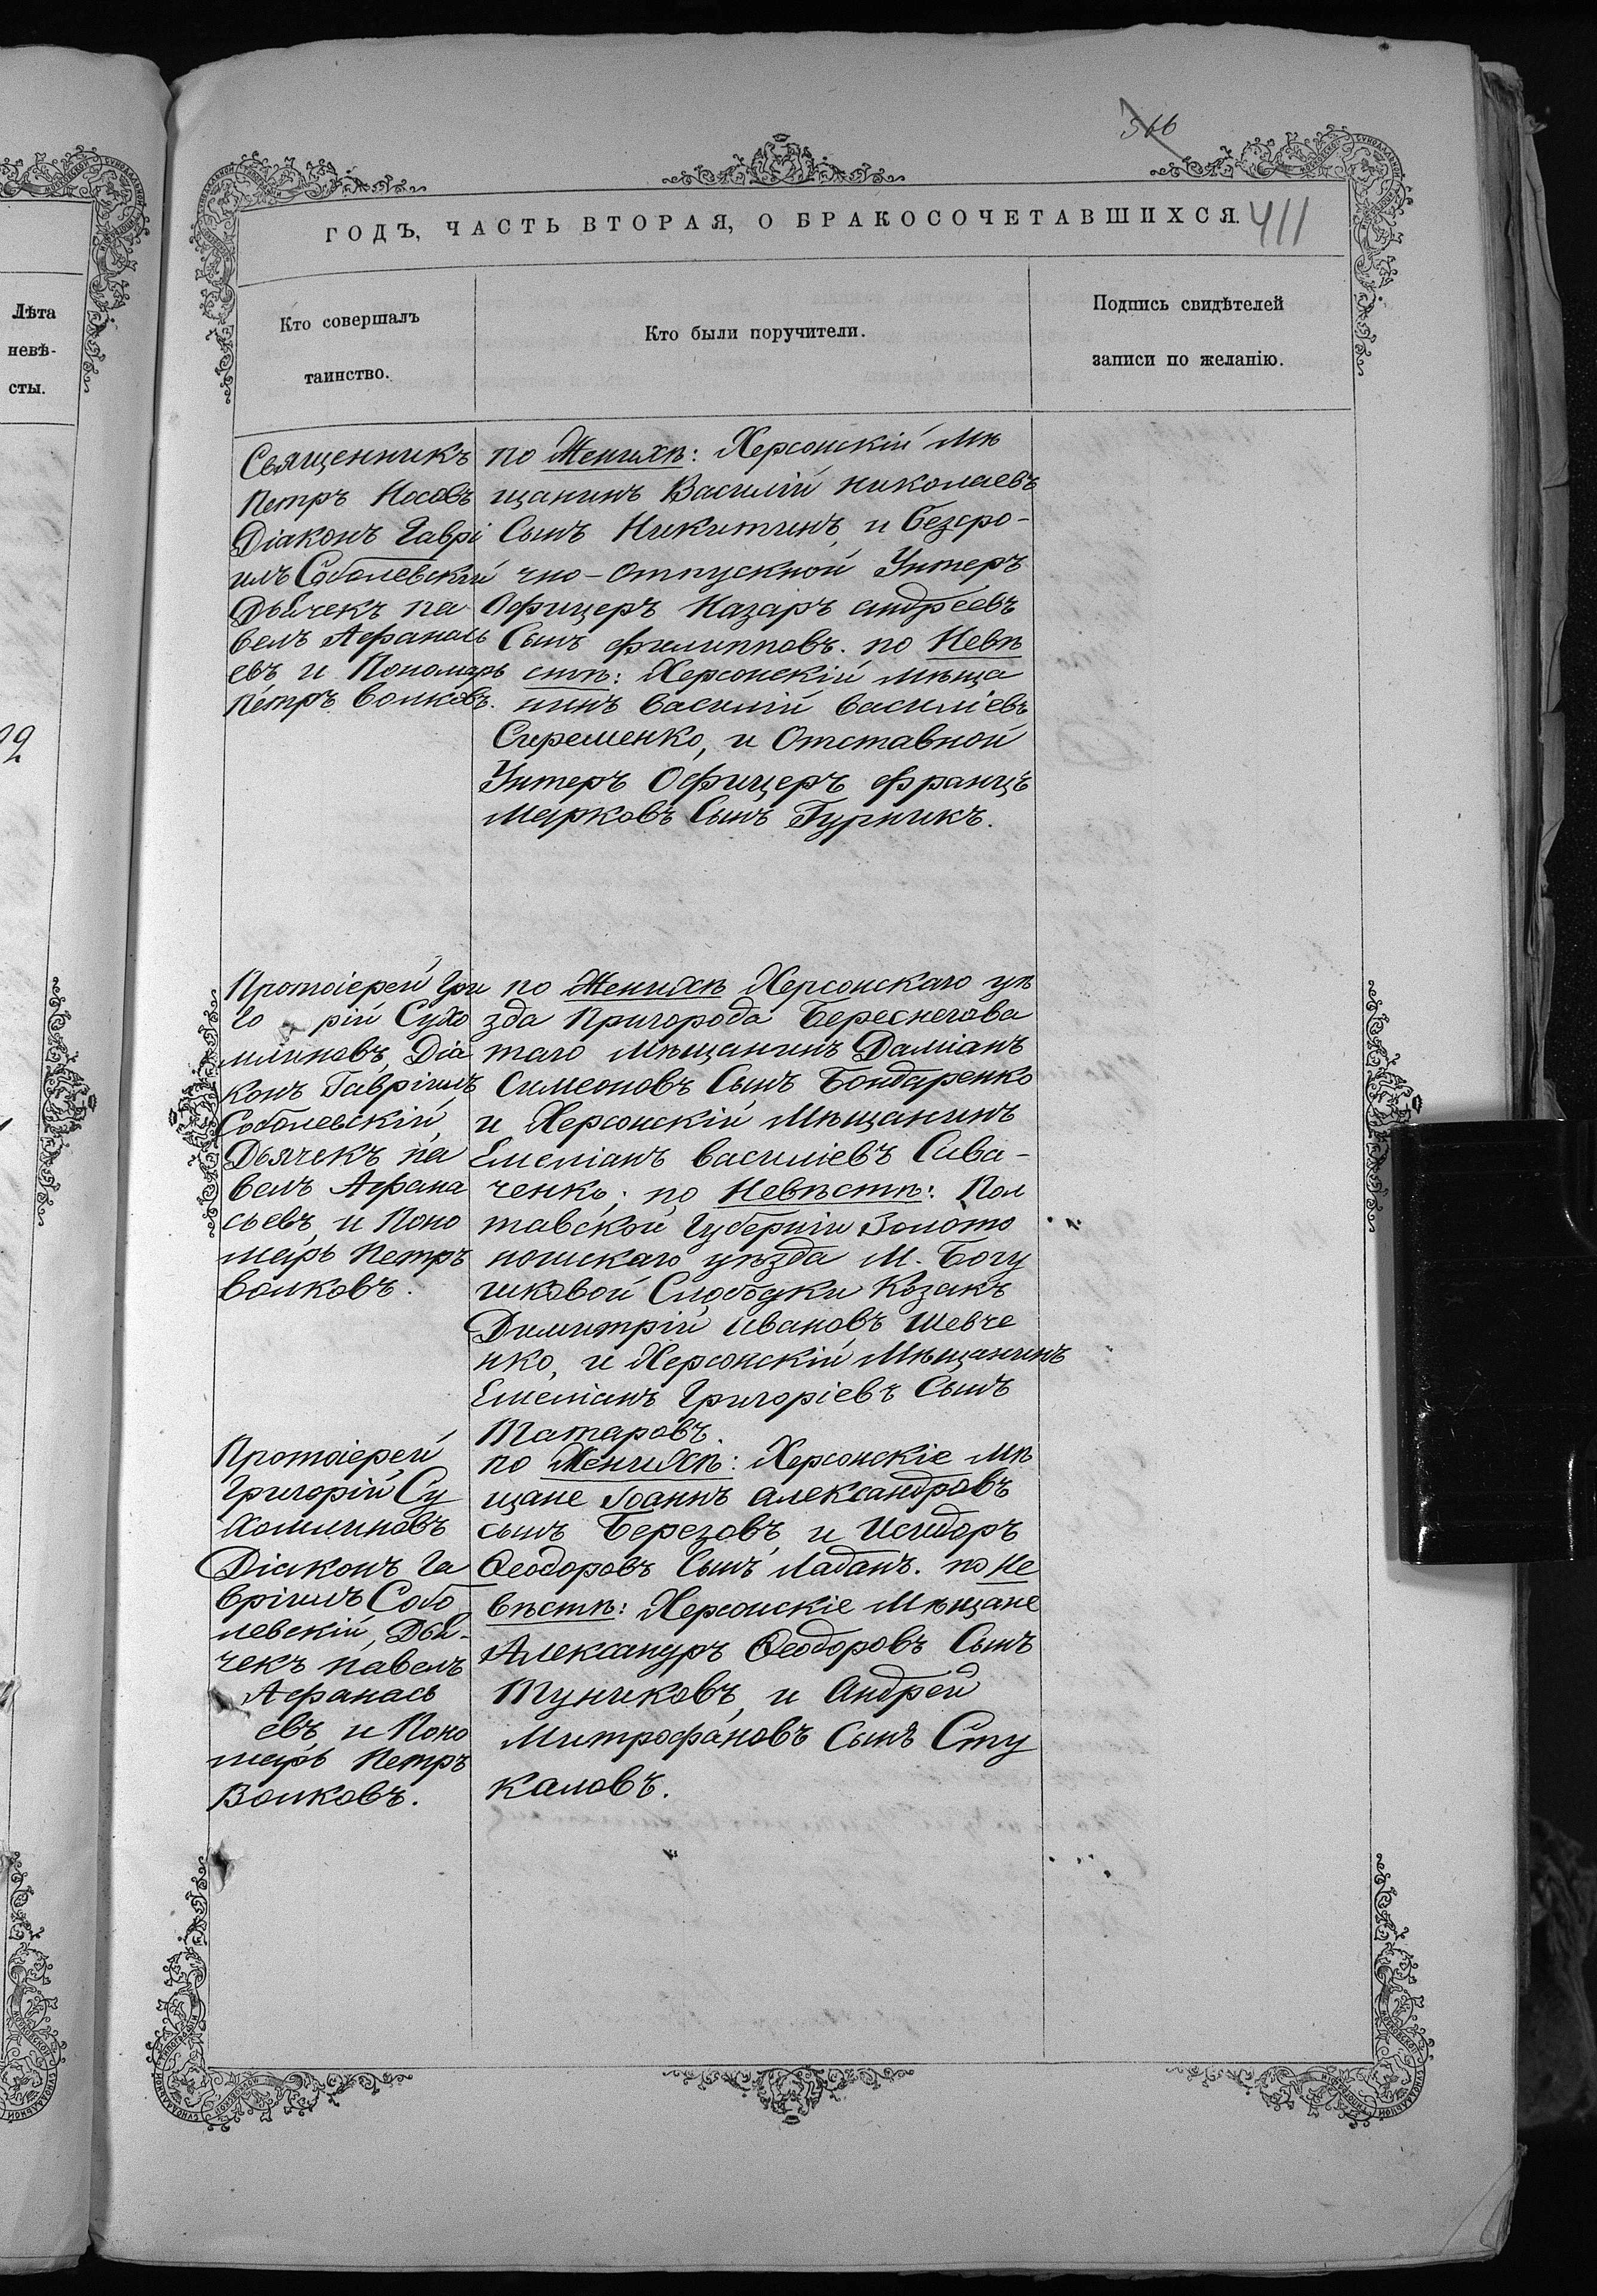 566
ГОДЪ, ЧАСТЬ ВТОРАЯ, О БРАКОСОЧЕТАВШИХСЯ.
411
Лѣта
невѣ-
сты.
Кто совершалъ
таинство.
Кто были поручители.
Подпись свидѣтелей
записи по желанію.
Священникъ
Петръ Носовъ
Діаконъ Гаврі
илъ Соболевскій
Дьячекъ па
велъ Афанась
евъ и Пономарь
Петръ волковъ.
по Женихѣ: Херсонскій Мѣ
щанинъ Василій николаевъ
Сынъ Никитинъ, и безсро-
чно-отпускной Унтеръ
Офицеръ Назаръ андреевъ
Сынъ филипповъ. по Невѣ
стѣ: Херсонскій мѣща
нинъ василій василіевъ
Сиременко, и Отставной
Унтеръ Офицеръ францъ
Марковъ Сынъ Гурникъ.
Протоіерей Гри
го рій Сухо
млиновъ, Діа
конъ Гавріилъ
Соболевскій,
Дьячекъ па
велъ Афана
сьевъ и Поно
марь Петръ
волковъ.
по Женихѣ Херсонскаго уѣ
зда Пригорода Береснегова
таго мѣщанинъ Даміанъ
Симеоновъ Сынъ Бондаренко
и Херсонскій Мѣщанинъ
Емеліанъ василіевъ Сива-
ченко; по Невѣстѣ: Пол
тавской Губерніи Золото
ношскаго уѣзда М. Богу
шковой Слободки Козакъ
Димитрій ивановъ Шевче
нко, и Херсонскій Мѣщанинъ
Емеліанъ Григоріевъ Сынъ
Татаровъ.
Протоіерей
Григорій Су
хомлиновъ
Діаконъ Га
вріилъ Собо
левскій, Дья-
чекъ павелъ
Афанась
евъ, и Поно
марь Петръ
Волковъ.
по Женихѣ: Херсонскіе Мѣ
щане Іоаннъ александровъ
сынъ Березовъ и Исидоръ
Ѳеодоровъ Сынъ Ладанъ. по Не
вѣстѣ: Херсонскіе Мѣщане
Александръ Ѳеодоровъ Сынъ
Туниковъ, и Андрей
Митрофановъ Сынъ Сту
каловъ.